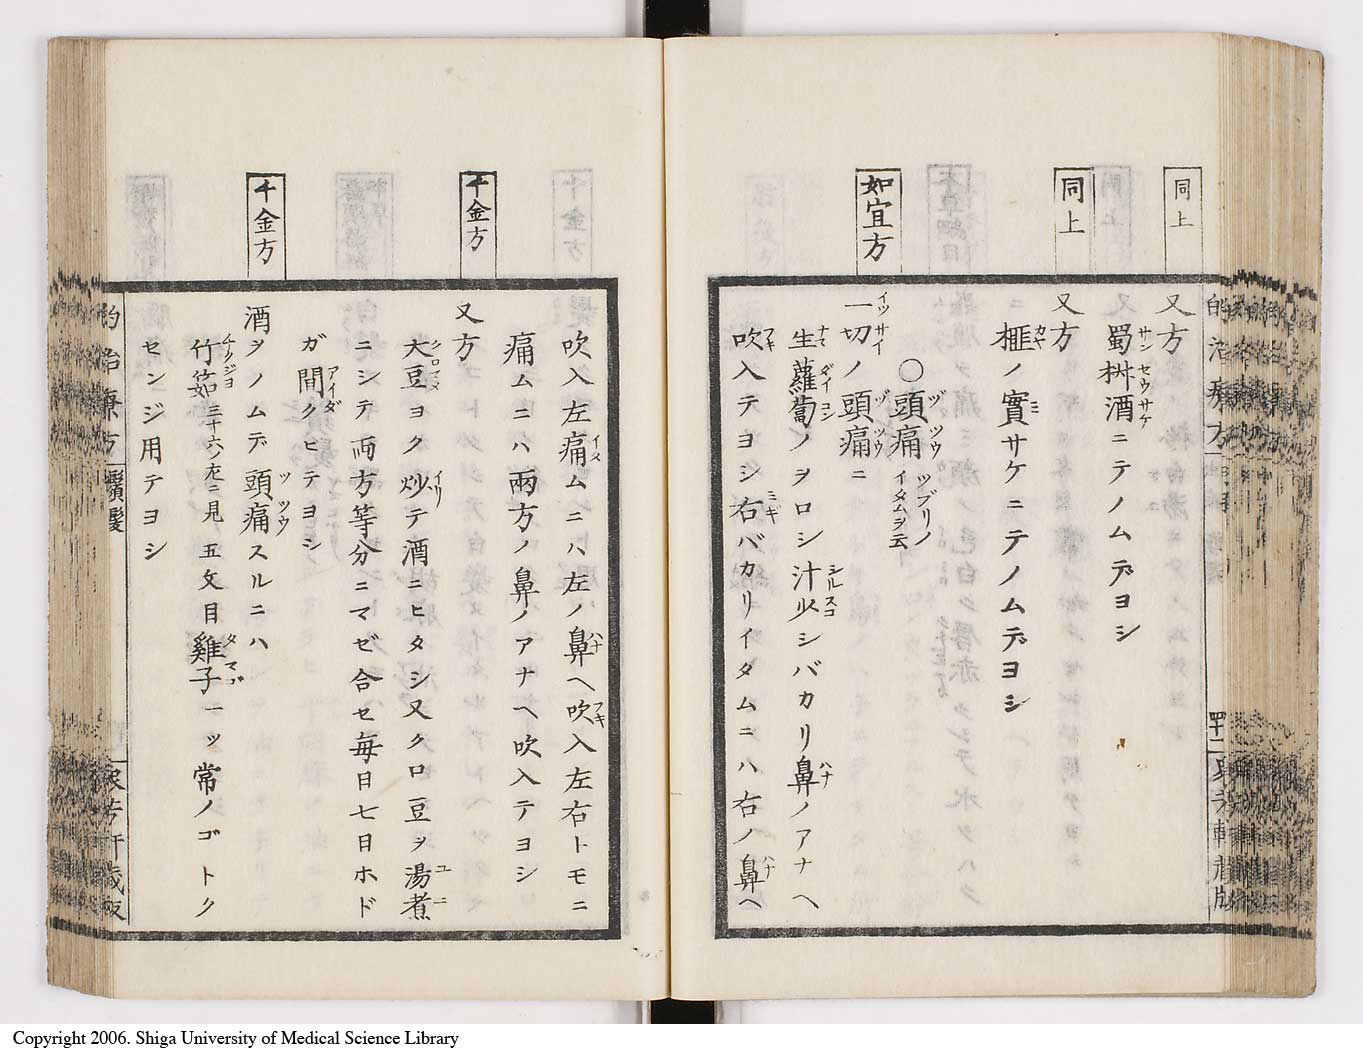 同上
又方
蜀椒酒ニテノムデヨシ
同上
又方
榧ノ實サケニテノムデヨシ
○頭痛 ヅツウ ツブリノイタムヲ云
如宜方
一切ノ頭痛ニ
生蘿蔔ノヲロシ汁少シバカリ鼻ノアナヘ
吹入テヨシ右バカリイタムニハ右ノ鼻ヘ
吹入左痛ムニハ左ノ鼻ヘ吹入左右トモニ
痛ムニハ兩方ノ鼻ノアナヘ吹入テヨシ
千金方
又方
大豆ヨク炒テ酒ニヒタシ又クロ豆ヲ湯煮
ニシテ両方等分ニマゼ合セ毎日七日ホド
ガ間クヒテヨシ
千金方
酒ヲノムデ頭痛スルニハ
竹筎 三十六ノ左ニ見 五文目雞子一ッ常ノゴトク
センジ用テヨシ
鬚髮
Copyright 2006. Shiga University of Medical Science Library